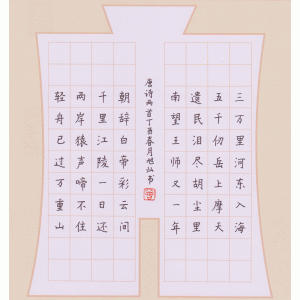 三万里河东入海
五千仞岳上摩天
遗民泪尽胡尘里
南望王师又一年
唐诗两首丁酉春月旭灿书
朝辞白帝彩云间
千里江陵一日还
两岸猿声啼不住
轻舟已过万重山